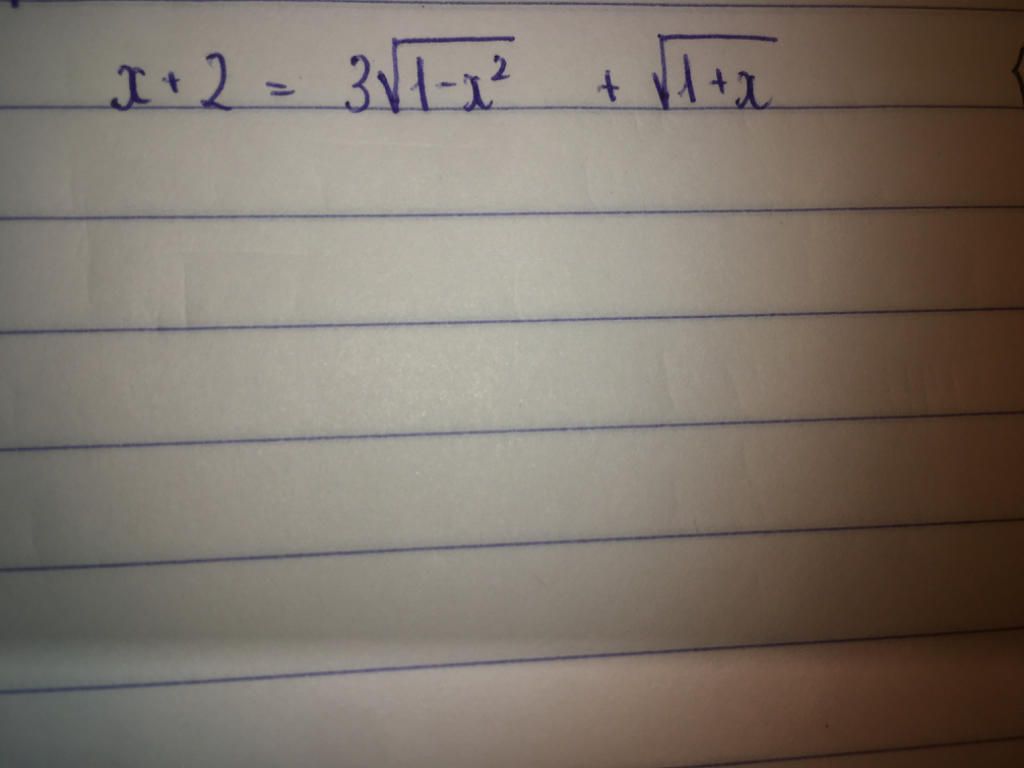 x + 2 = 3√(1-x²) + √(1+x)